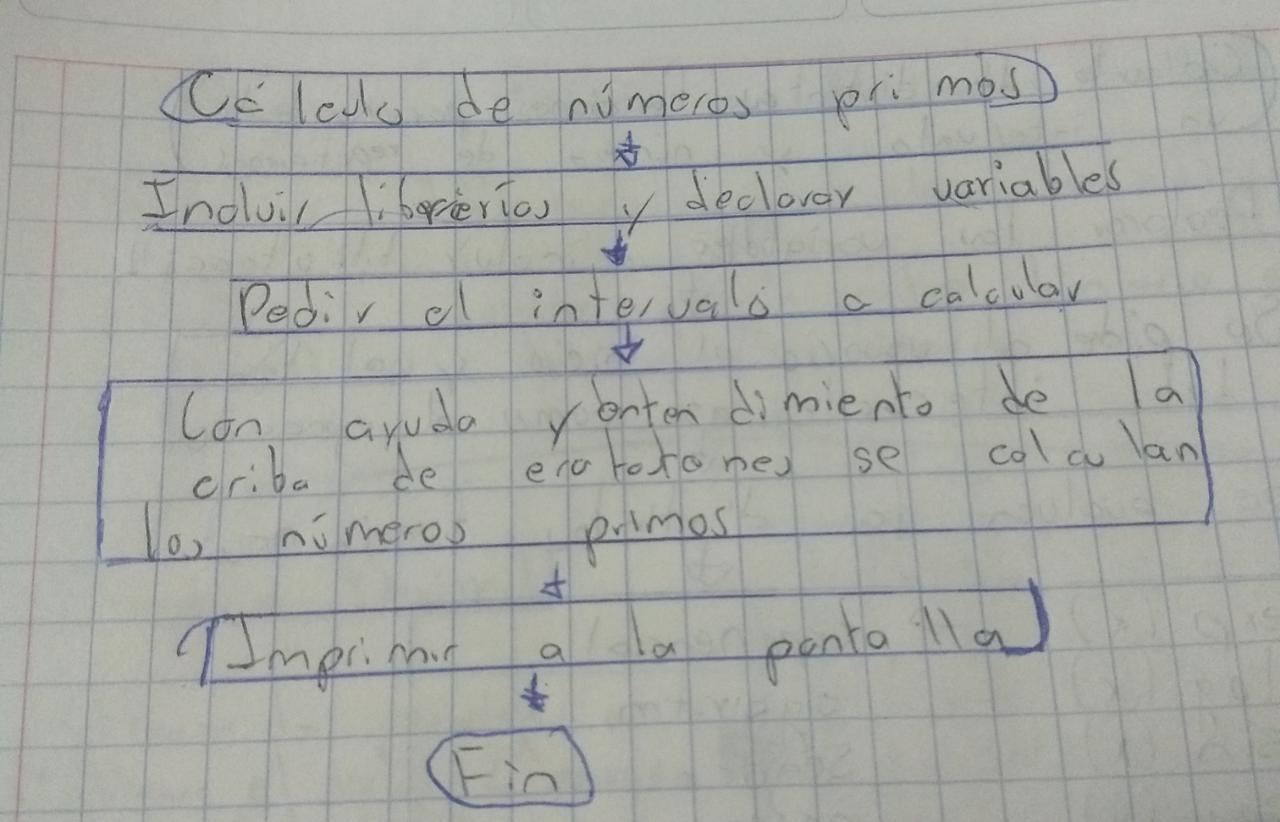 Cálculo de números primos
Incluir librerías y declarar variables
Pedir el intervalo a calcular
Con ayuda y entendimiento de la
criba de eratotones se calculan
los números primos
Imprimir a la pantalla
Fin